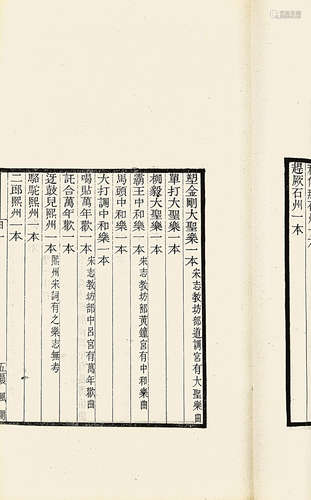 趕厥石州一本
塑金剛大聖樂一本宋志教坊部道調宮有大聖樂曲
單打大聖樂一本
柳毅大聖樂一本
霸王中和樂一本宋志教坊部黃鐘宮有中和樂曲
馬頭中和樂一本
大打調中和樂一本
喝貼萬年歡一本宋志教坊部中呂宮有萬年歡曲
託合萬年歡一本
迓鼓兒熙州一本熙州宋詞有之樂志無考
駱駝熙州一本
二郎熙州一本